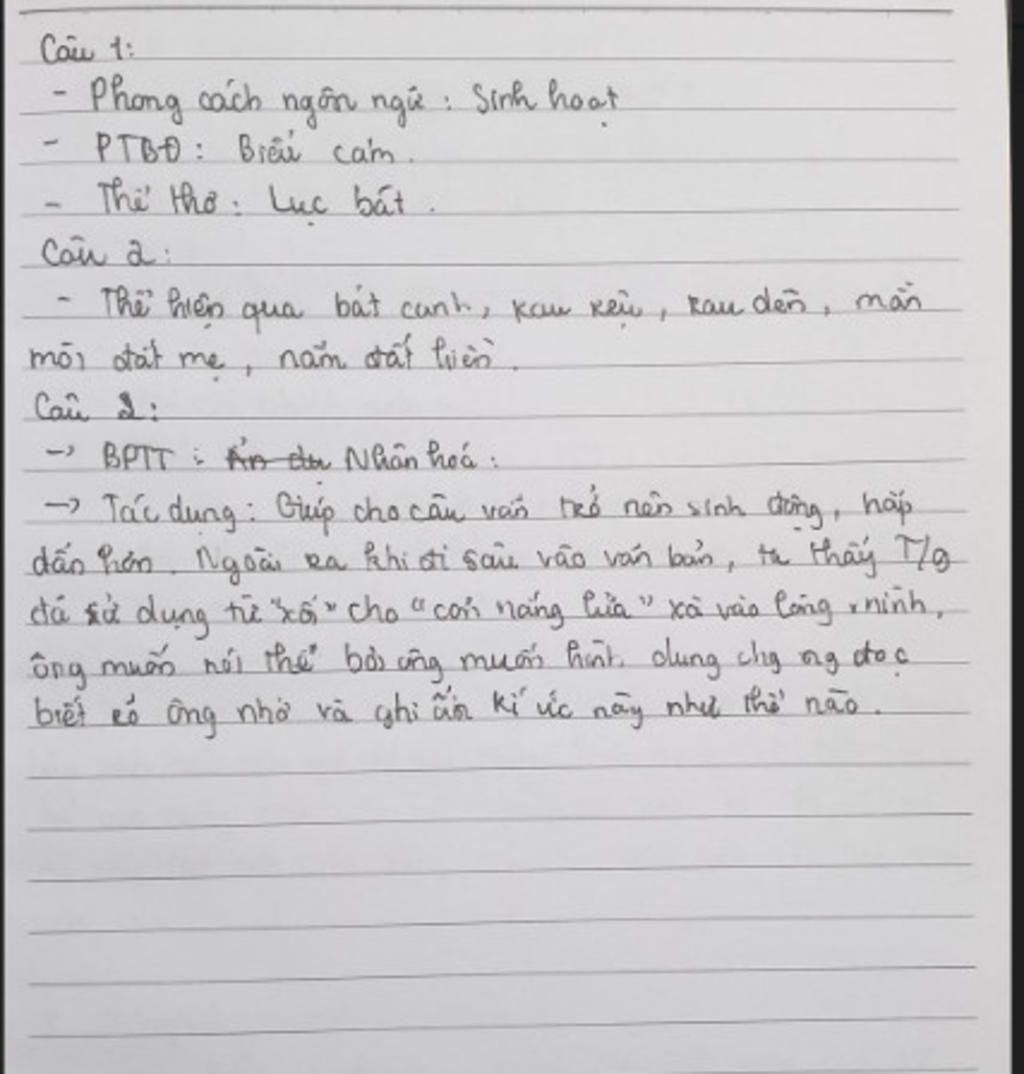 Câu 1:
- Phong cách ngôn ngữ : Sinh hoạt
- PTBĐ : Biểu cảm.
- Thể thơ : Lục bát.
Câu 2:
- Thể hiện qua bát canh, rau rệu, rau dền, mặn
mòi đất mẹ, nắm đất hiền.
Câu 2:
-> BPTT : Ẩn dụ Nhân hoá :
-> Tác dụng : Giúp cho câu văn trở nên sinh động, hấp
dẫn hơn. Ngoài ra khi đi sâu vào văn bản, ta thấy T/g
đã sử dụng từ "xối" cho "cơn nắng lửa" xả vào lòng mình,
ông muốn nói thế bởi ông muốn hình dung cho ng đọc
biết rõ ông nhớ và ghi ấn kí ức này như thế nào.